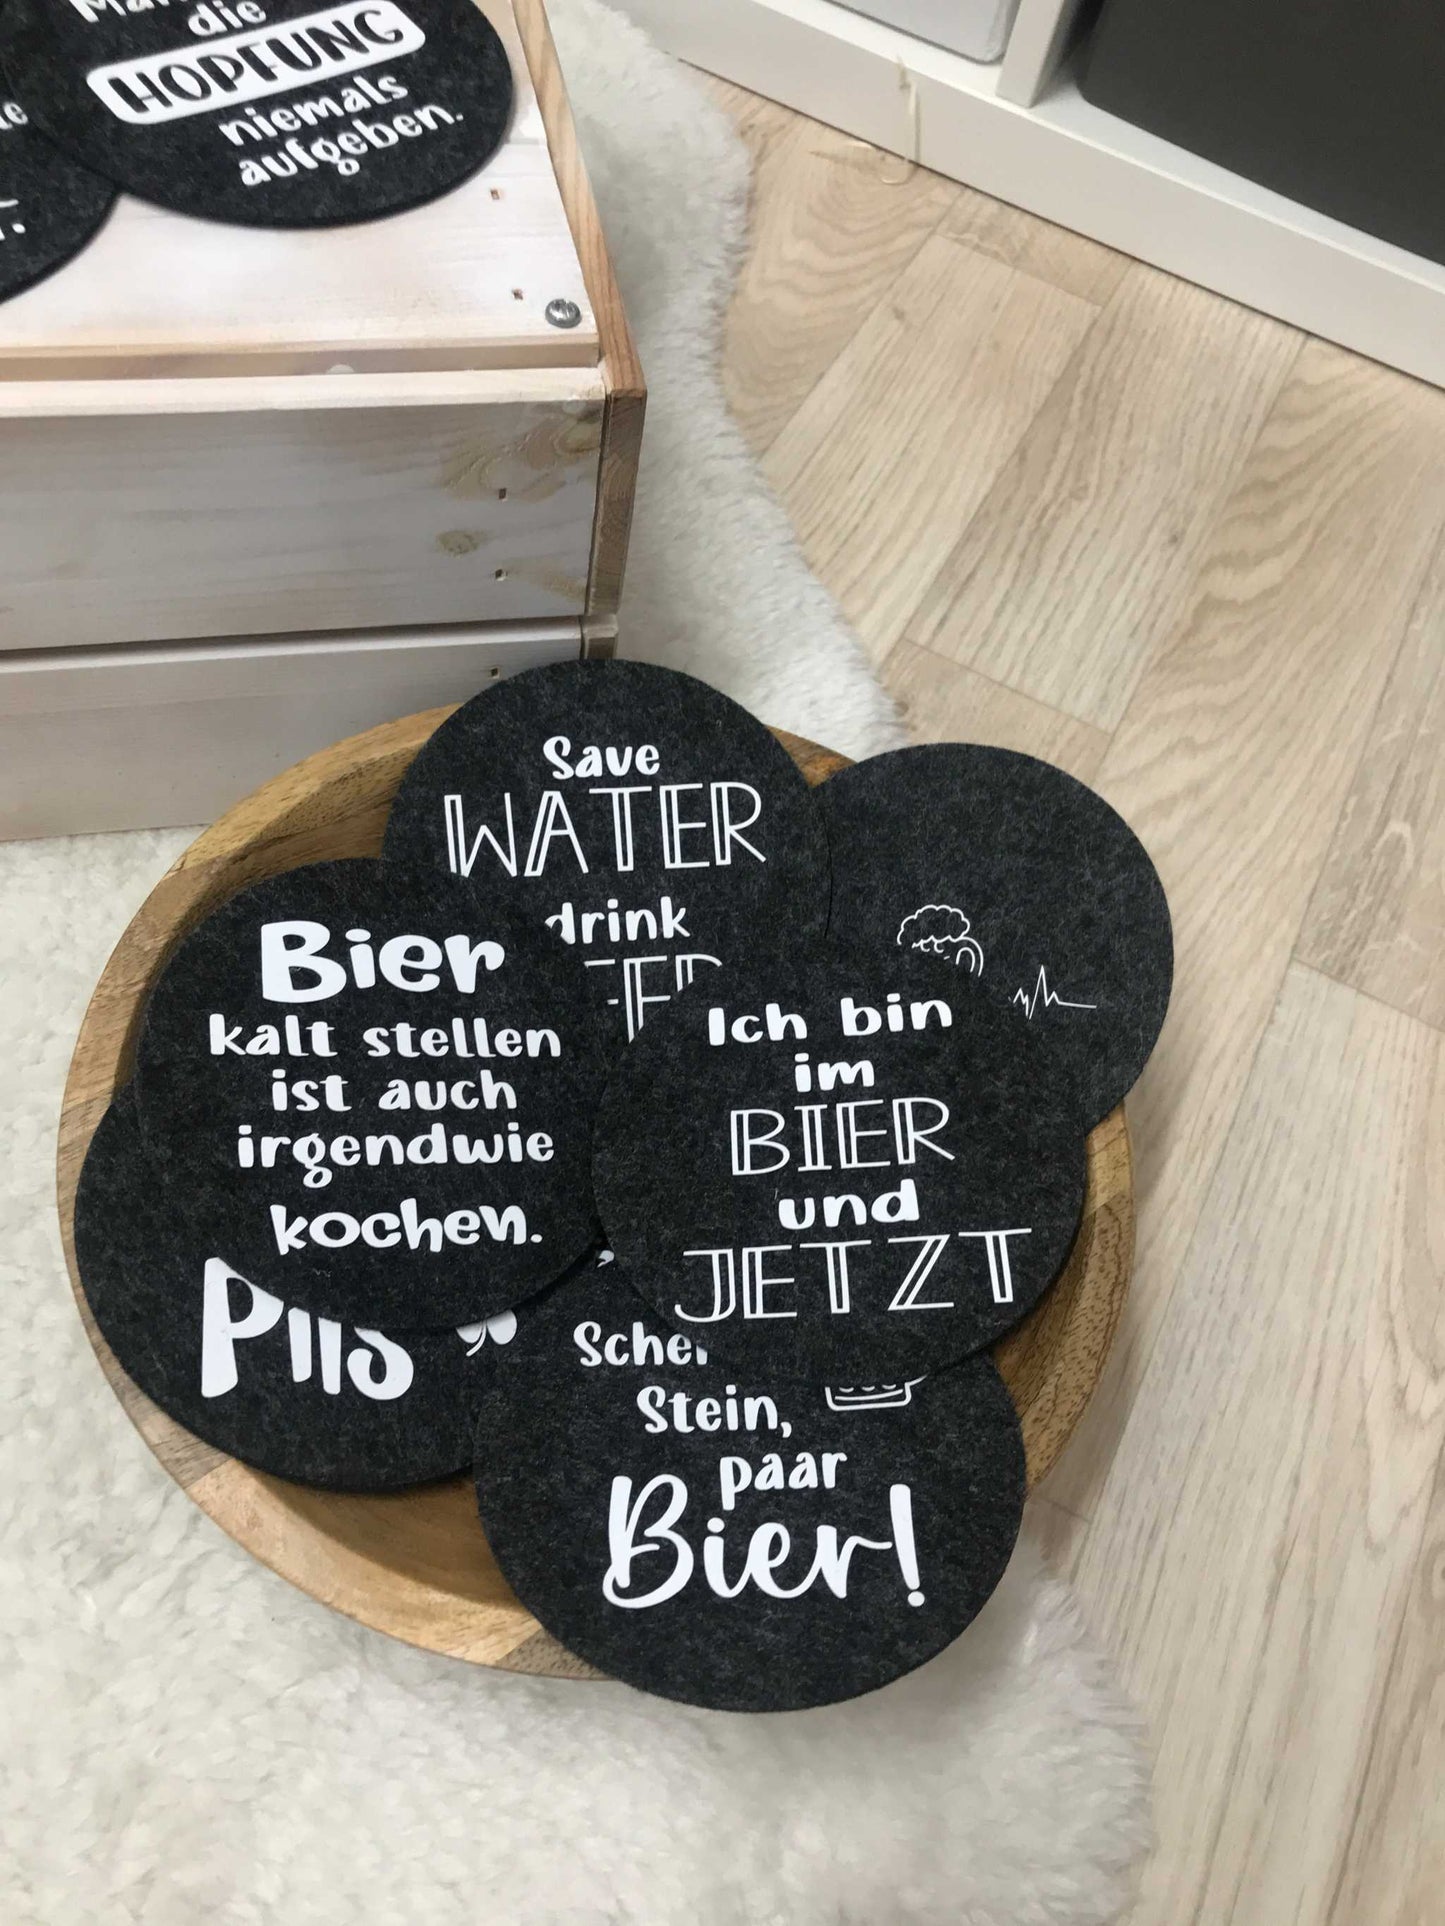 die
HOPFUNG
niemals
aufgeben.
Save
WATER
drink
Bier
kalt stellen
ist auch
irgendwie
kochen.
Ich bin
im
BIER
und
JETZT
Pils
Stein,
paar
Bier!